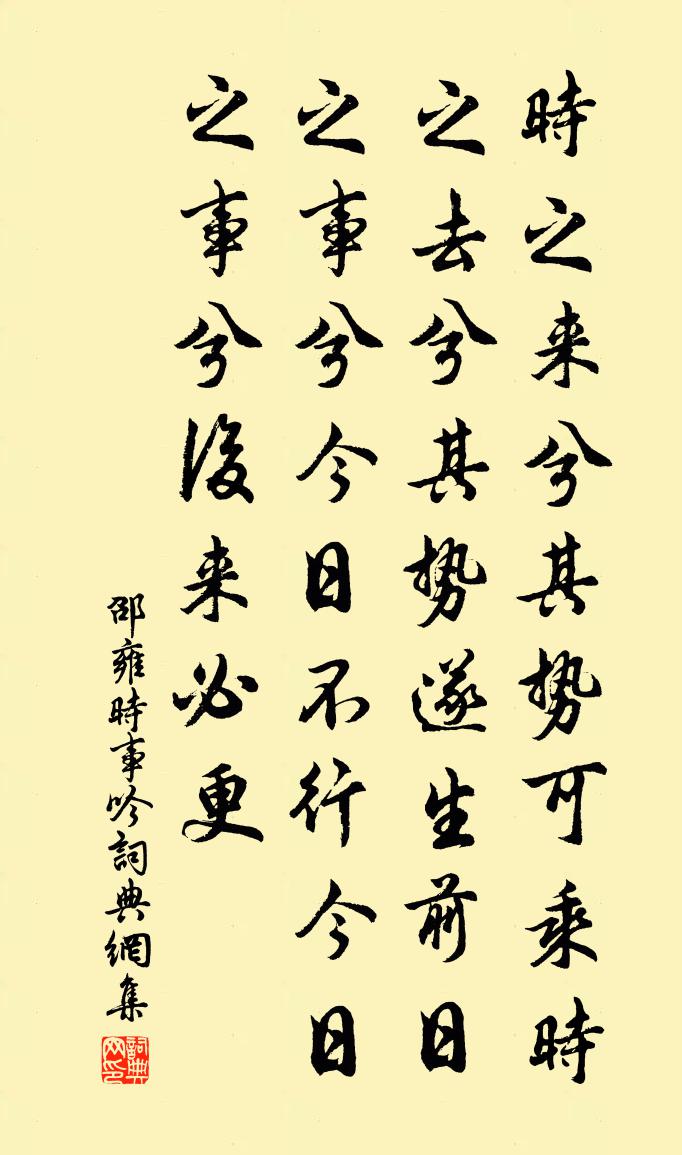 時之来兮其势可乘時
之去兮其势遂生前日
之事兮今日不行今日
之事兮後来必更
邵雍時事吟詞典網集
詞典网印